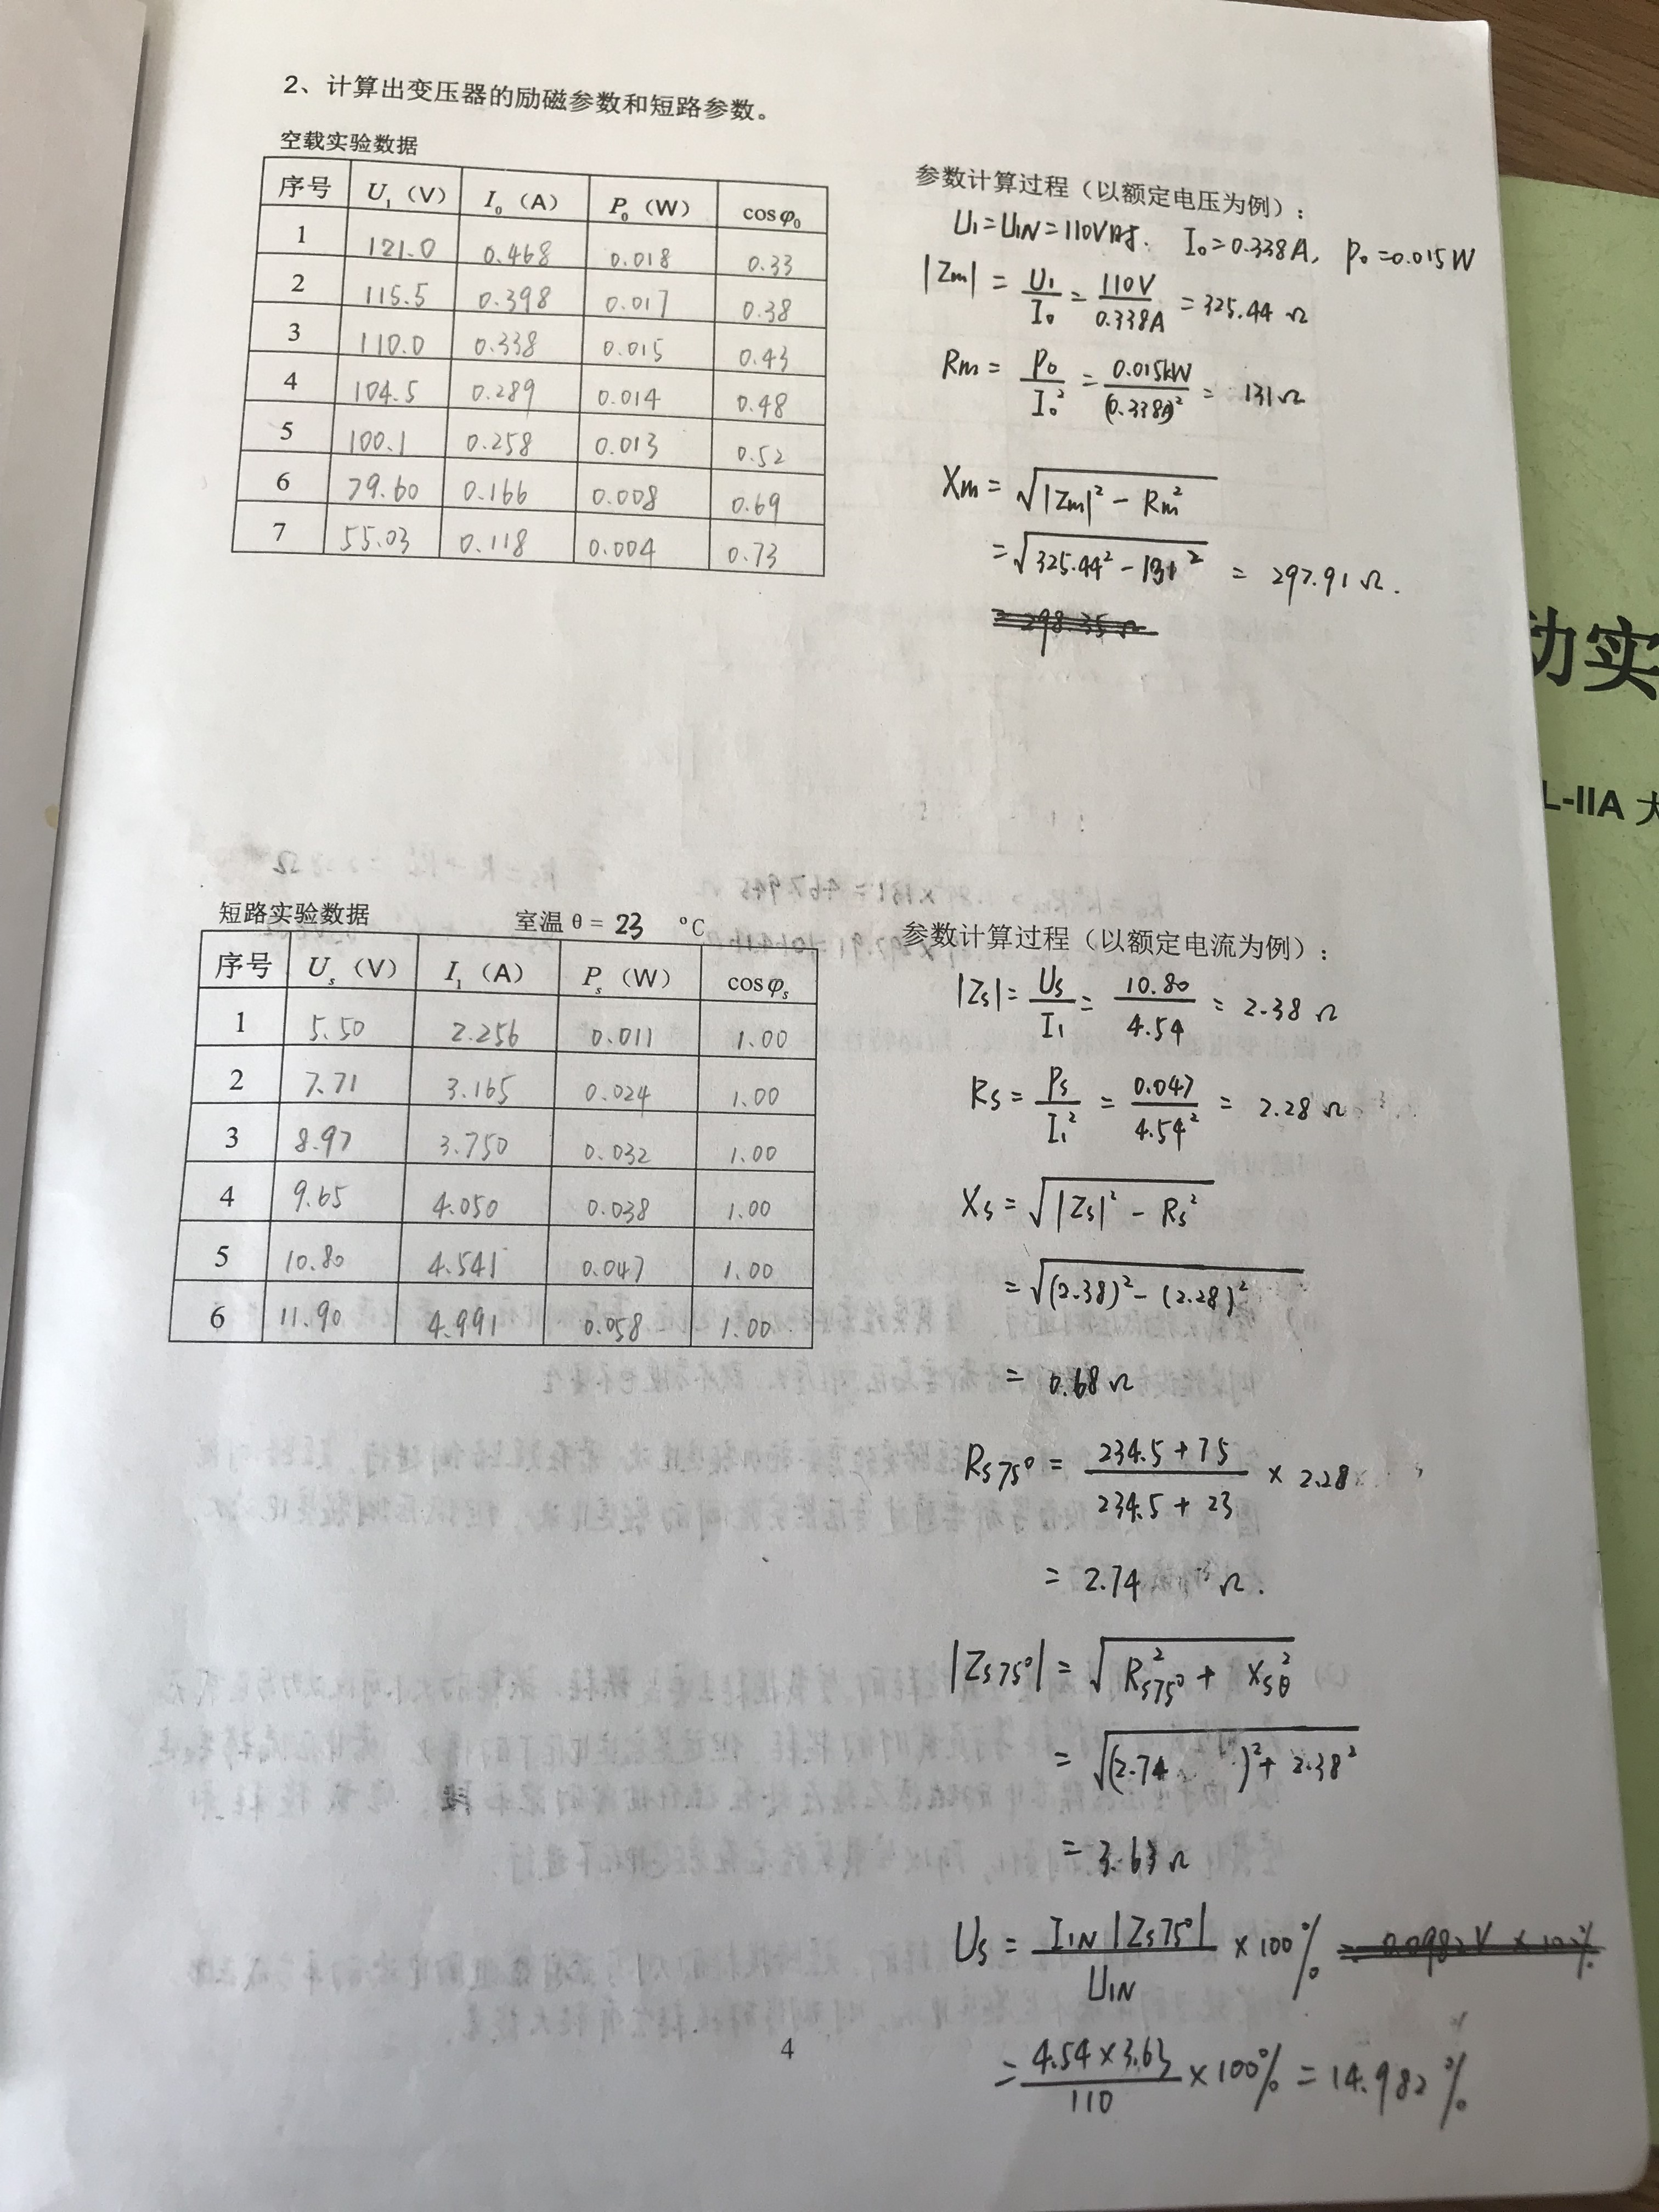 2、计算出变压器的励磁参数和短路参数。
空载实验数据
序号 U₁（V） I₀（A） P₀（W） cosφ₀
1 121.0 0.468 0.018 0.33
2 115.5 0.398 0.017 0.38
3 110.0 0.338 0.015 0.43
4 104.5 0.289 0.014 0.48
5 100.1 0.258 0.013 0.52
6 79.60 0.166 0.008 0.69
7 55.03 0.118 0.004 0.73
参数计算过程（以额定电压为例）:
U₁=U₁N=110V时. I₀=0.338A, P₀=0.015W
|Zm| = U₁/I₀ = 110V/0.338A = 325.44 Ω
Rm = P₀/I₀² = 0.015kW/(0.338A)² = 131Ω
Xm = √(|Zm|² - Rm²)
= √(325.44² - 131²) = 297.91Ω.
= 298.35Ω
短路实验数据 室温 θ = 23 °C
序号 Uₛ（V） I₁（A） Pₛ（W） cosφₛ
1 5.50 2.256 0.011 1.00
2 7.71 3.165 0.024 1.00
3 8.97 3.750 0.032 1.00
4 9.65 4.050 0.038 1.00
5 10.80 4.541 0.047 1.00
6 11.90 4.991 0.058 1.00
参数计算过程（以额定电流为例）:
|Zs| = Us/I₁ = 10.80/4.54 = 2.38 Ω
Rs = Ps/I₁² = 0.047/4.54² = 2.28Ω
Xs = √(|Zs|² - Rs²)
= √((2.38)² - (2.28)²)
= 0.68Ω
Rs75° = (234.5+75)/(234.5+23) × 2.28
= 2.74 Ω.
|Zs75°| = √(Rs75°² + Xsθ²)
= √((2.74)² + 2.38²)
= 3.63Ω
Us = I₁N|Zs75°|/U₁N ×100% = 0.0982V × 10%
= 4.54×3.63/110 ×100% = 14.982%
4
动实
L-IIA 大